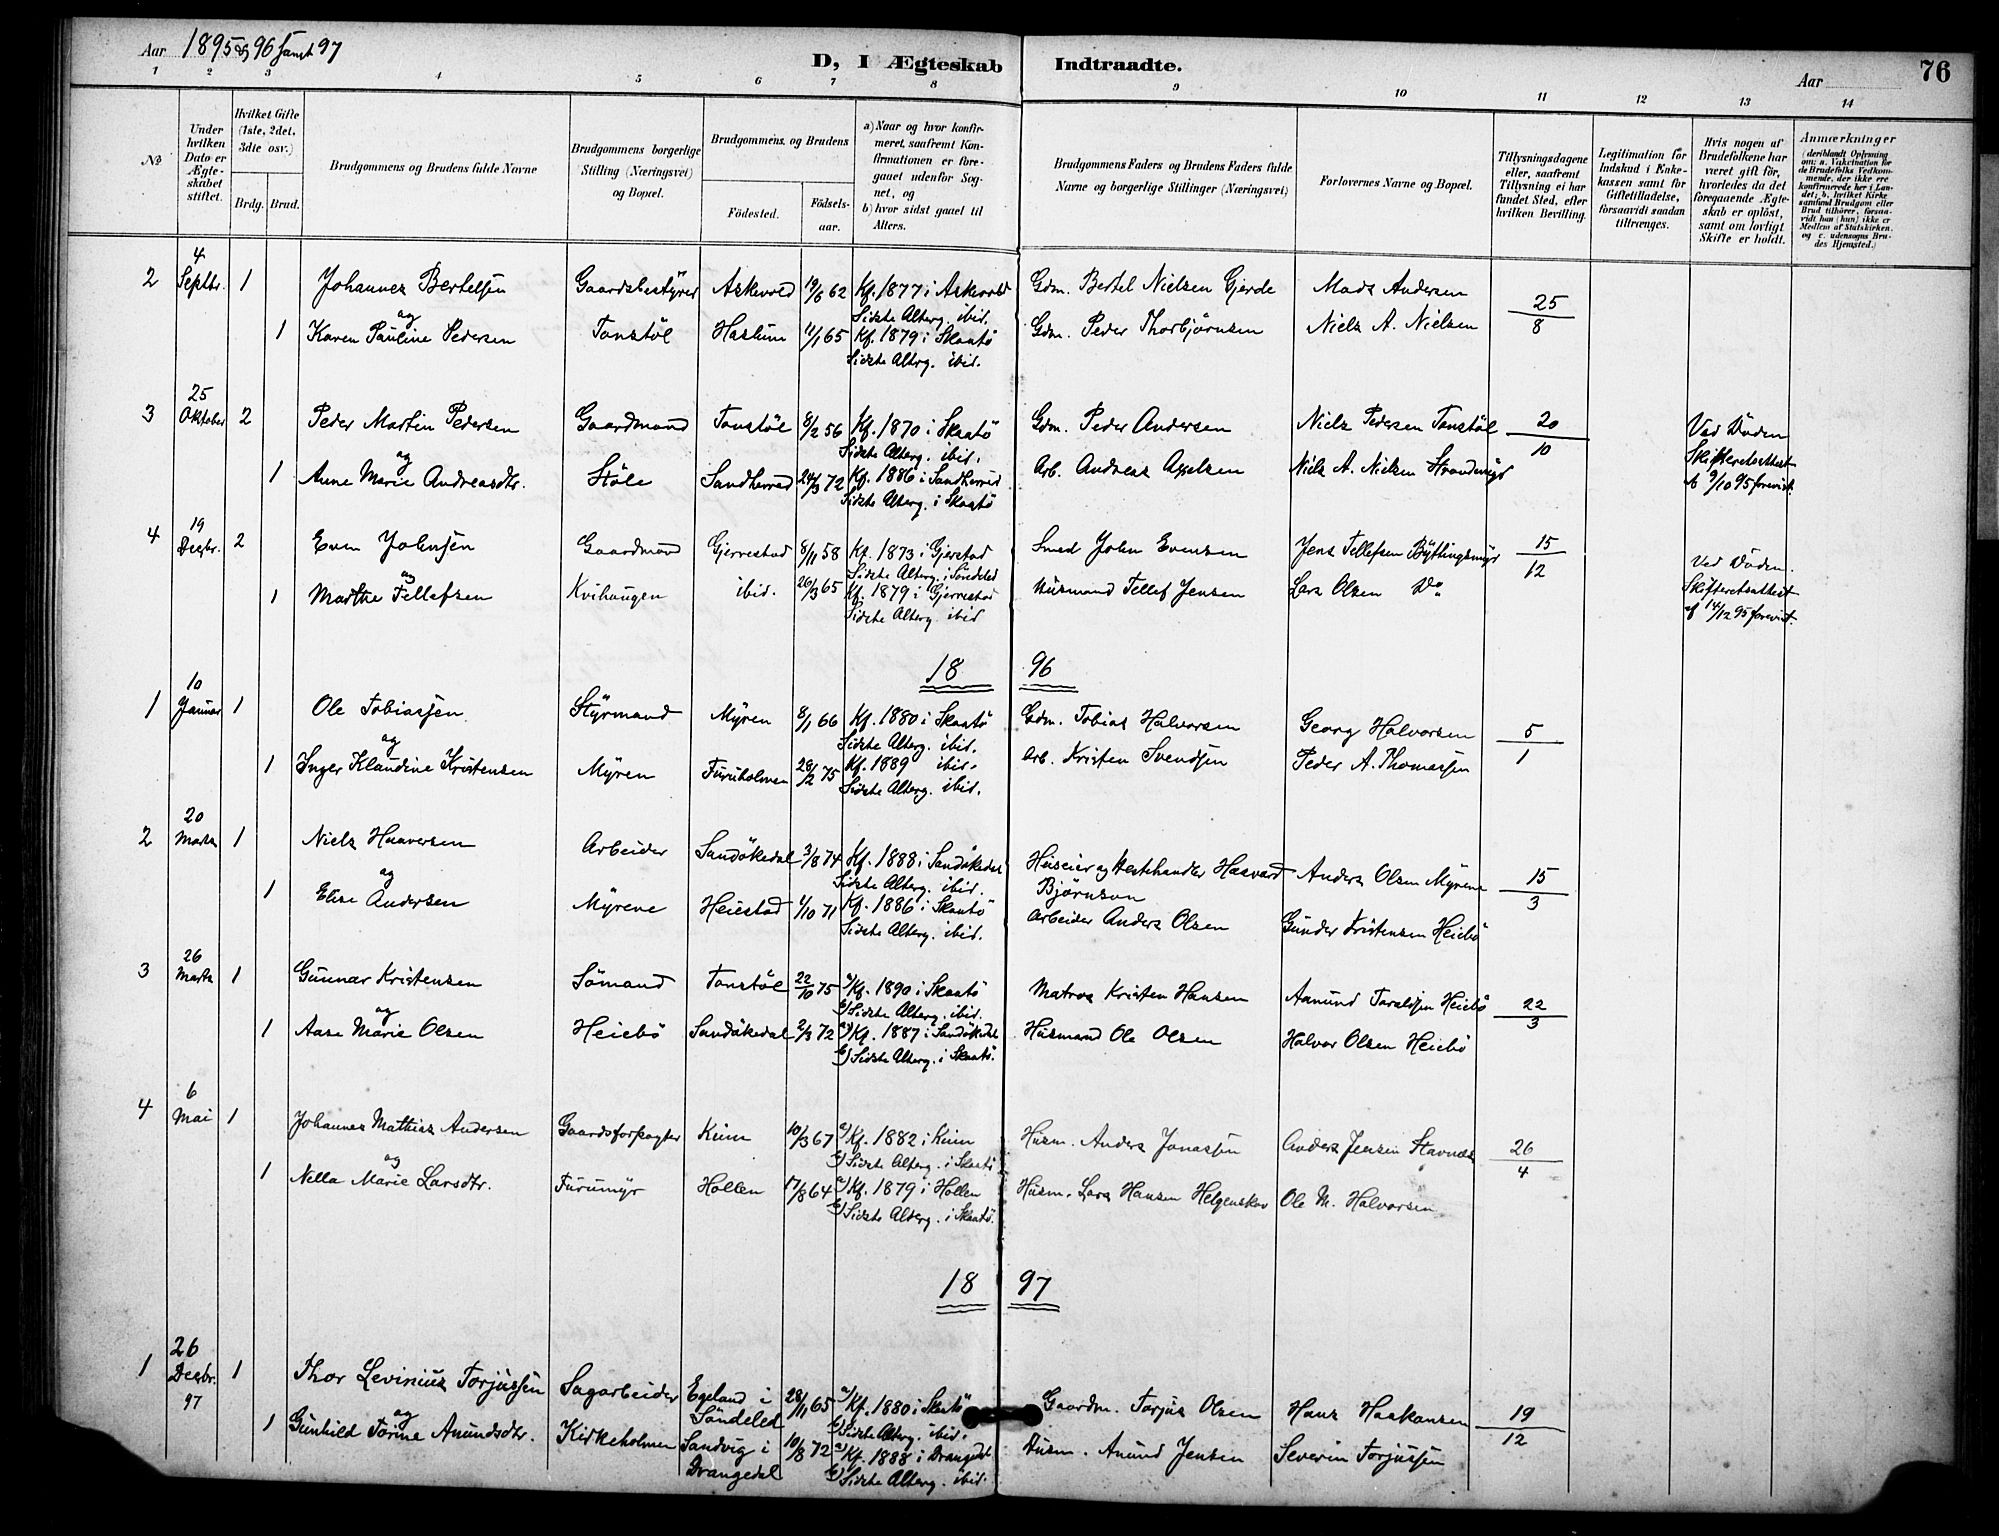 Aar 1895 og 96 samt 97
D, I Ægteskab Indtraadte.
Aar
76
1 2 3 4 5 6 7 8 9 10 11 12 13 14
No
Under hvilken Dato er Ægteskabet stiftet.
Hvilket Gifte (1ste, 2det, 3die osv.)
Brdg. Brud.
Brudgommens og Brudens fulde Navne
Brudgommens borgerlige Stilling (Næringsvei) og Bopæl.
Brudgommens og Brudens
Fødested. Fødselsaar.
a) Naar og hvor konfirmeret, saafremt Konfirmationen er foregaaet udenfor Sognet, og
b) hvor sidst gaaet til Alters.
Brudgommens Faders og Brudens Faders fulde Navne og borgerlige Stillinger (Næringsvei)
Forlovernes Navne og Bopæl.
Tillysningsdagene eller, saafremt Tillysning ei har fundet Sted, efter hvilken Bevilling.
Legitimation for Indskud i Enkekassen samt for Giftetilladelse, forsaavidt saadan tiltrænges.
Hvis nogen af Brudefolkene har været gift før, hvorledes da det foregaaende Ægteskab er opløst, samt om lovligt Skifte er holdt.
Anmærkninger
(deriblandt Oplysning om: a. Vakcination for de Brudefolks Vedkommende, der ikke ere konfirmerede her i Landet; b. hvilket Kirkesamfund Brudgom eller Brud tilhører, forsaavidt han (hun) ikke er Medlem af Statskirken, og c. udensogns Brudes Hjemsted.)
2 4 Septbr. 1 Johannes Bertelsen Gaardsbestyrer Askevold 19/6 62 Kf. 1877 i Askevold Gdm. Bertel Nielsen Gjerde Mads Andersen 25/8
og Sidste Alterg. ibid.
1 Karen Pauline Pedersen Tonstöl Haslum 11/1 65 Kf. 1879 i Skaatö Gdm. Peder Thorbjørnsen Niels A. Nielsen
Sidste Alterg. ibid.
3 25 Oktober 2 Peder Martin Pedersen Gaardmand Tonstöl 8/2 56 Kf. 1870 i Skaatö Gdm. Peder Andersen Niels Pedersen Tonstöl 20/10 Ved Döden
og Sidste Alterg. ibid. Skifteretsattest
1 Anne Marie Andreasdtr. Stöle Sandherred 24/3 72 Kf. 1886 i Sandherred Arb. Andreas Axelsen Niels A. Nielsen af 9/10 95 forevist.
Sidste Alterg. i Skaatö
4 19 Decbr. 2 Even Johnsen Gaardmand Gjerrestad 8/11 58 Kf. 1873 i Gjerstad Smed John Evensen Jens Tellefsen 15/12 Ved Döden.
og Sidste Alterg. i Söndeled Skifteretsattest
1 Marthe Tellefsen Kvihaugen ibid. 26/3 65 Kf. 1879 i Gjerrestad Husmand Tellef Jensen Lars Olsen Do af 14/12 95 forevist.
Sidste Alterg. ibid
18 96
1 10 Januar 1 Ole Tobiassen Styrmand Myren 8/1 66 Kf. 1880 i Skaatö Gdm. Tobias Halvorsen Georg Halvorsen 5/1
og Sidste Alterg. ibid.
1 Inger Klaudine Kristensen Myren Furuholmen 28/2 75 Kf. 1889 ibid. Arb. Kristen Svendsen Peder A. Thomassen
Sidste Alterg. ibid.
2 20 Marts 1 Niels Haaversen Arbeider Sandökedal 3/8 74 Kf. 1888 i Sandökedal Huseier og Hestehandler Haavard Bjørnson Anders Olsen Myrene 15/3
og Sidste Alterg. ibid.
1 Elise Andersen Myrene Heiestad 1/10 71 Kf. 1886 i Skaatö Arbeider Anders Olsen Gunder Kristensen Heiebö
Sidste Alterg. ibid.
3 26 Marts 1 Gunnar Kristensen Sömand Tonstöl 22/10 75 a) Kf. 1890 i Skaatö Matros Kristen Hansen Aamund Taraldsen Heiebö 22/3
og b) Sidste Alterg. ibid.
1 Aase Marie Olsen Heiebö Sandökedal 2/3 72 a) Kf. 1887 i Sandökedal Husmand Ole Olsen Halvor Olsen Heiebö
b) Sidste Alterg. i Skaatö.
4 6 Mai 1 Johannes Mathias Andersen Gaardsforpagter 10/3 67 a) Kf. 1882 i Husm. Anders Jonassen Anders Jensen Stavnæs 26/4
og b) Sidste Alterg. i Skaatö
1 Nella Marie Larsdtr. Furumyr Hollen 17/8 64 a) Kf. 1879 i Hollen Husm. Lars Hansen Helgenskov Ole M. Halvorsen
b) Sidste Alterg. i Skaatö.
18 97
1 26 Decbr. 97 1 Thor Levinius Torjussen Sagarbeider Egeland i Söndeled 28/11 65 a) Kf. 1880 i Skaatö Gaardm. Torjus Olsen Hans Haakansen 19/12
og b) Sidste Alterg. ibid.
1 Gunhild Torine Anundsdtr. Kirkeholmen Sandvig i Drangedal 10/8 72 a) Kf. 1888 i Drangedal Husm. Anund Jensen Severin Torjussen
b) Sidste Alterg. ibid.